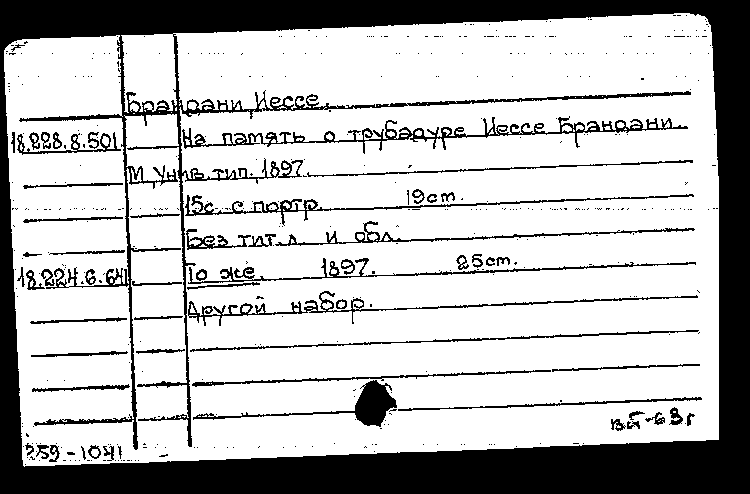 Брандани, Иессе.
18.228.8.501 На память о трубадуре Иессе Брандани.
М., Унив. тип., 1897.
15с. с портр. 19cm.
Без тит. л. и обл.
18.224.6.641 То же. 1897. 25cm.
Другой набор.
259-1041